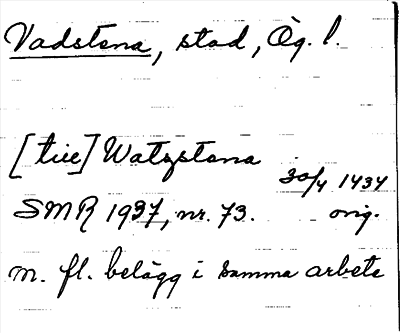 Vadstena, stad, Ög. l.
[tüe] Watzstana
30/4 1434
SMR 1937, nr. 73. orig.
m. fl. belägg i samma arbete